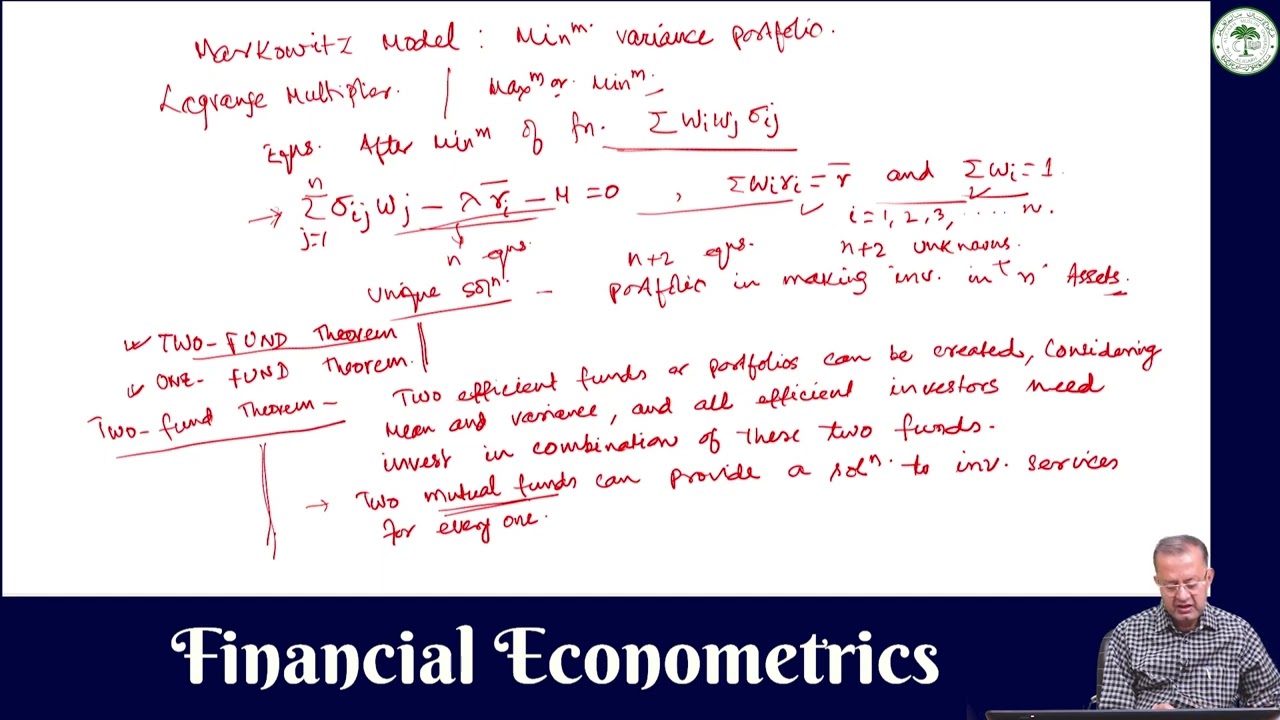 Markowitz Model : Minᵐ. variance portfolio.
Lagrange Multiplier. | Maxᵐ or. Minᵐ.
Eqns. After Minᵐ of fn. Σ wi wj σij
→ Σ_{j=1}^{n} σij wj − λ r̄i − μ = 0 , Σ wi ri = r̄ and Σ wi = 1
i = 1, 2, 3, ..... n.
n eqns. n+2 eqns. n+2 unknowns.
Unique solⁿ. – portfolio in making inv. in "n" Assets.
TWO-FUND Theorem
ONE-FUND Theorem.
Two-fund Theorem – Two efficient funds or portfolios can be created, Considering
Mean and variance, and all efficient investors need
invest in combination of these two funds.
→ Two mutual funds can provide a solⁿ. to inv. services
for every one.
Financial Econometrics